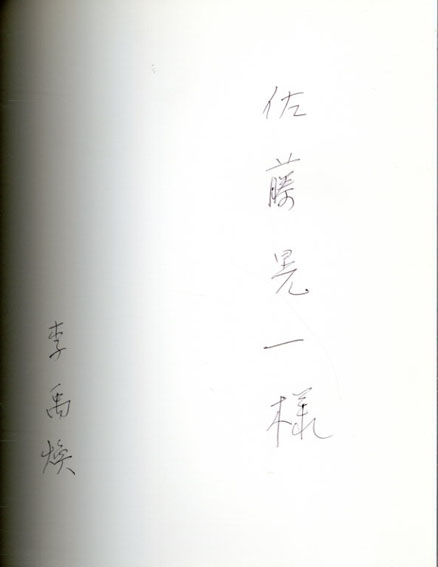 佐藤晃一様
李禹煥